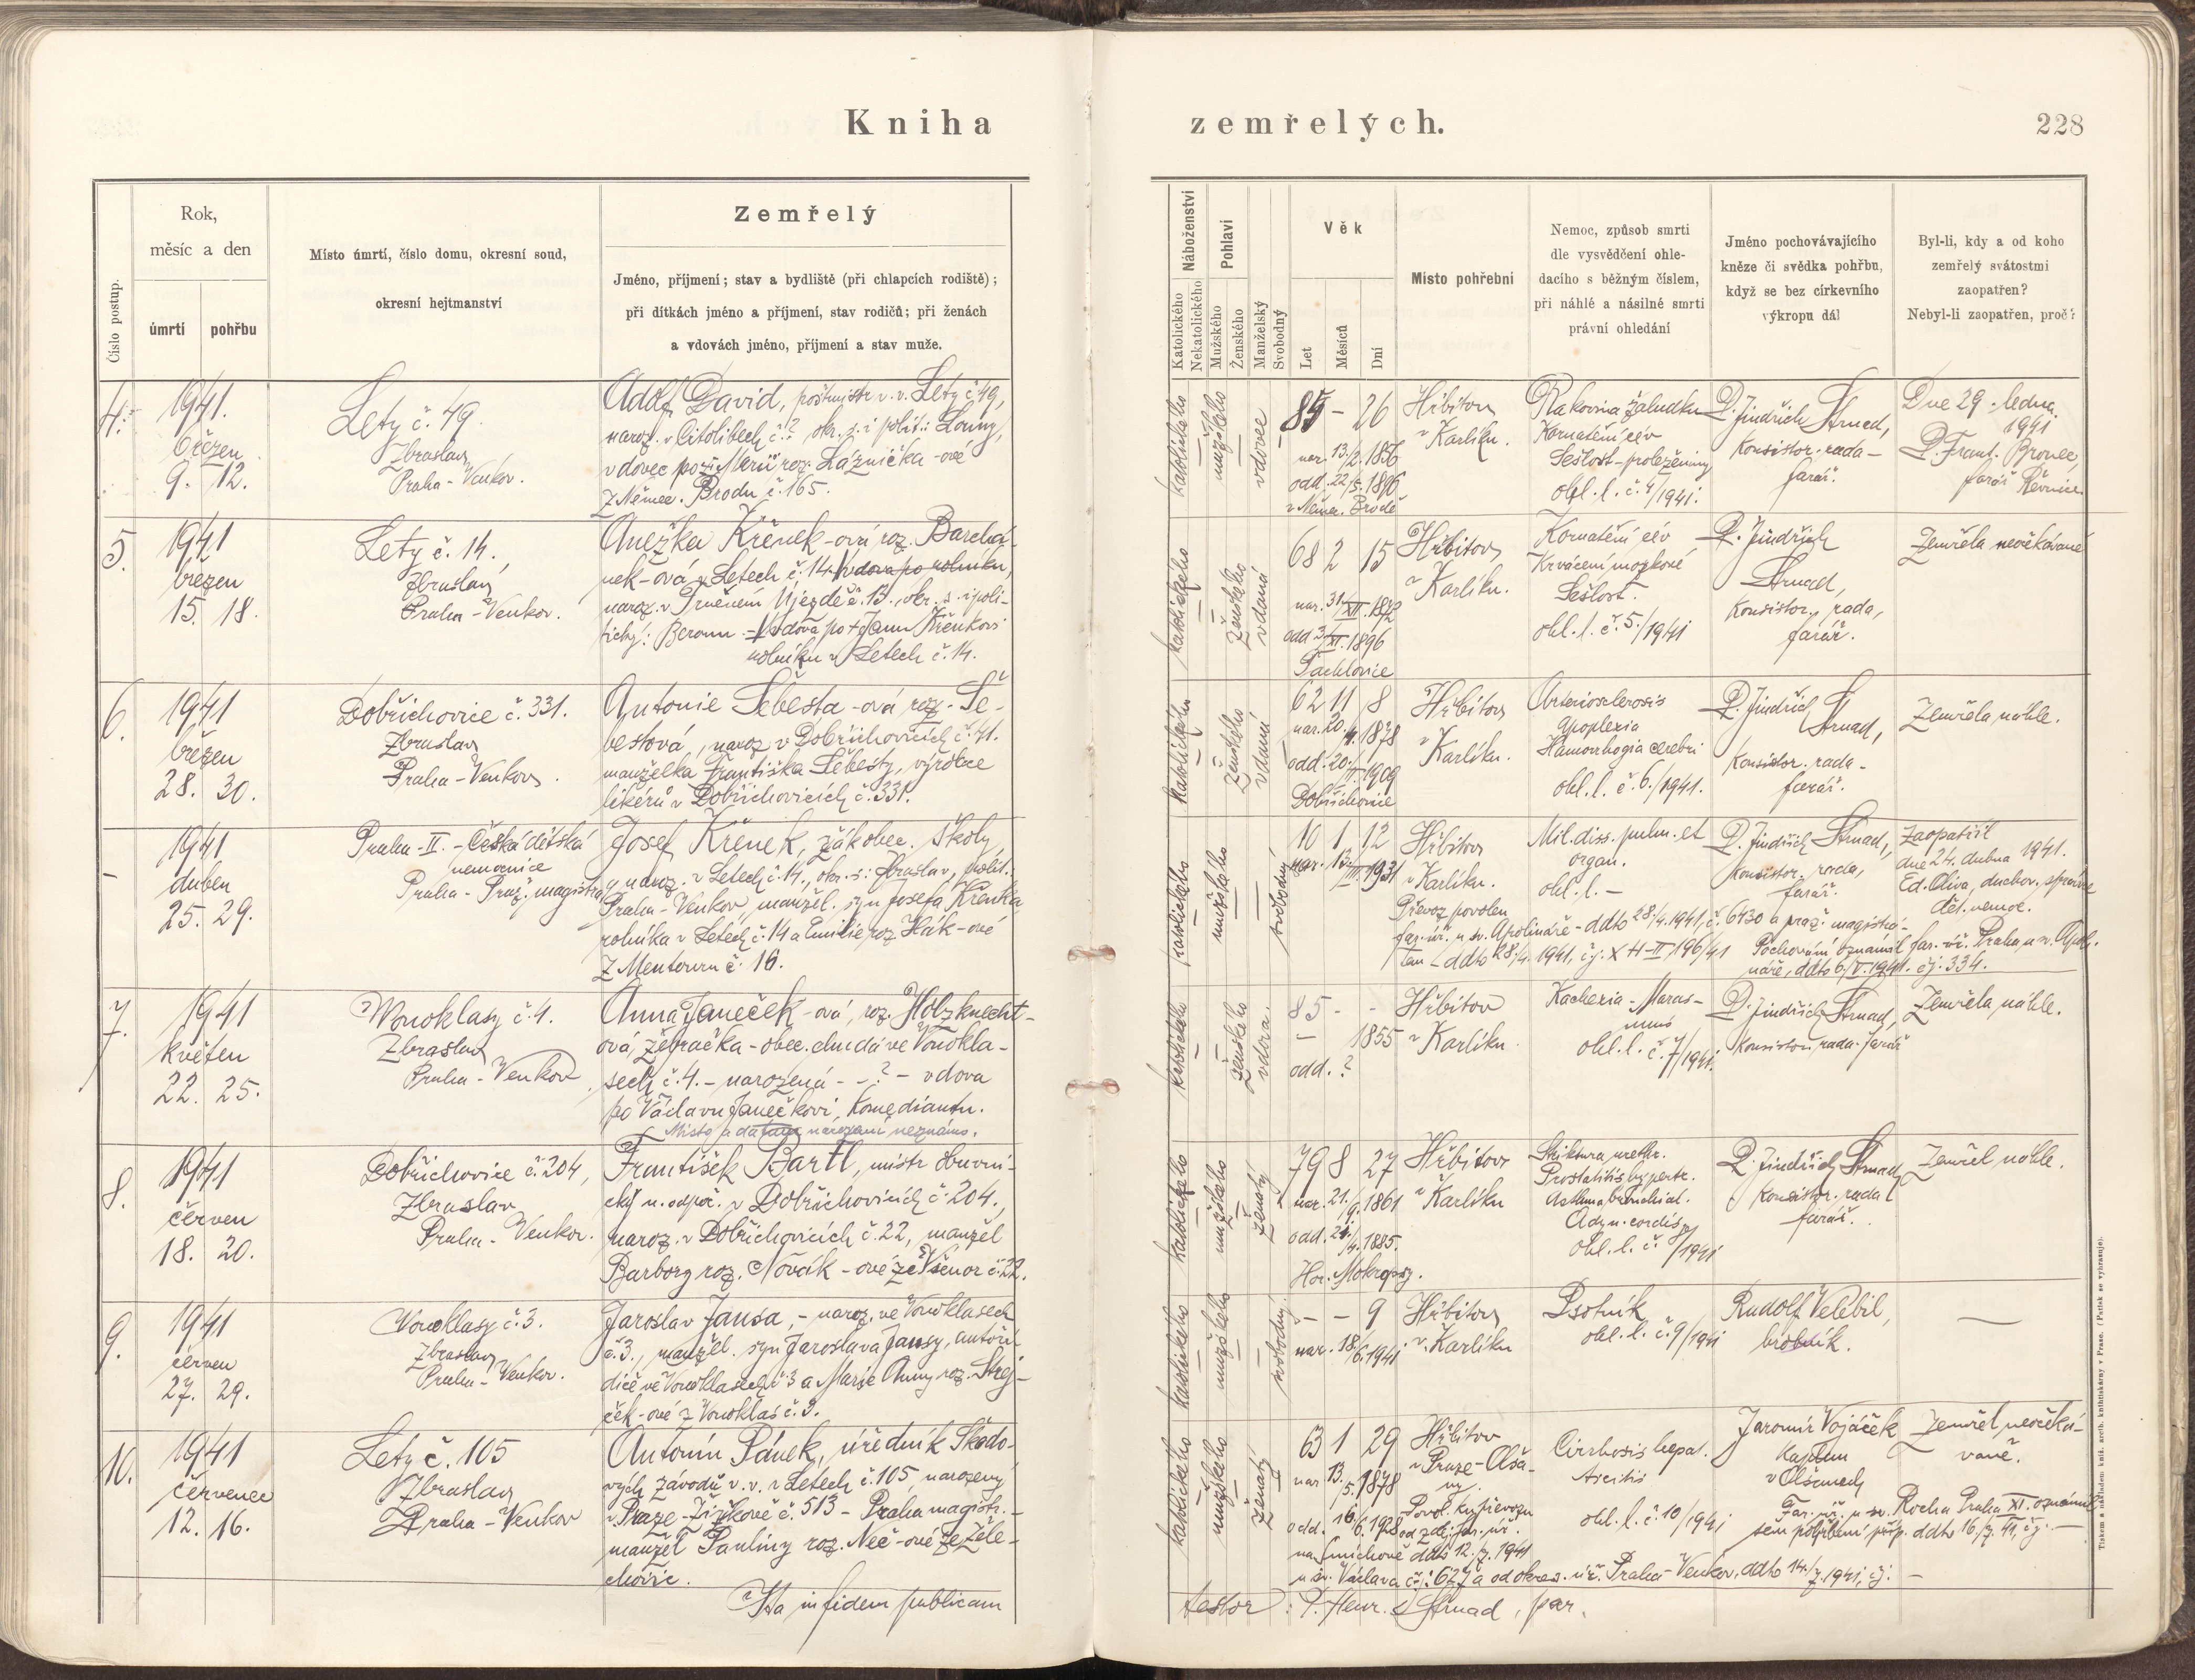 Kniha
zemřelých.
228
Číslo postup.
Rok,
měsíc a den
úmrtí
pohřbu
Místo úmrtí, číslo domu, okresní soud,
okresní hejtmanství
Zemřelý
Jméno, příjmení; stav a bydliště (při chlapcích rodiště);
při dítkách jméno a příjmení, stav rodičů; při ženách
a vdovách jméno, příjmení a stav muže.
Náboženství
Katolického
Nekatolického
Pohlaví
Mužského
Ženského
Manželský
Svobodný
Věk
Let
Měsíců
Dní
Místo pohřební
Nemoc, způsob smrti
dle vysvědčení ohle-
dacího s běžným číslem,
při náhlé a násilné smrti
právní ohledání
Jméno pochovávajícího
kněze či svědka pohřbu,
když se bez církevního
výkropu dál
Byl-li, kdy a od koho
zemřelý svátostmi
zaopatřen?
Nebyl-li zaopatřen, proč?
4.
1941.
březen
9. 12.
Lety č. 49.
Zbraslav
Praha-Venkov.
Adolf David, poštmistr v. v. Lety č. 49,
naroz. v Citolibech č.? okr. s. i polit.: Louny,
vdovec po Marii roz. Láznička-ové
z Němec. Brodu č. 165.
katolického
mužského
vdovec
85 - 26
nar. 13/2.1856
odd. 22/5.1896
v Němec. Brodě
Hřbitov
v Karlíku.
Rakovina žaludku
Kornatění cév
Sešlost-proleženiny
ohl. l. č. 4/1941.
P. Jindřich Strnad,
Konsistor. rada-
farář.
Dne 29. ledna
1941
P. Frant. Bronec,
farář Řevnice
5.
1941
březen
15. 18.
Lety č. 14.
Zbraslav
Praha-Venkov.
Anežka Křenek-ová roz. Barchá-
nek-ová v Letech č. 14. vdova po rolníku,
naroz. v Trněném Újezdě č. 13., okr. s. i poli-
tický: Beroun - Vdova po + Janu Křenkovi
rolníku v Letech č. 14.
katolického
ženského
vdaná
68 2 15
nar. 31/XII.1872
odd 3/XI.1896
Tachlovice
Hřbitov
v Karlíku.
Kornatění cév
Krvácení mozkové
Sešlost.
ohl. l. č. 5./1941
P. Jindřich
Strnad,
Konsistor. rada,
farář.
Zemřela neočekávaně
6.
1941
březen
28. 30.
Dobřichovice č. 331.
Zbraslav
Praha-Venkov.
Antonie Šebesta-ová roz. Še-
bestová, naroz v Dobřichovicích č. 41.
manželka Františka Šebesty, výrobce
likérů v Dobřichovicích č. 331.
katolického
ženského
vdaná
62 11 8
nar. 20/4.1878
odd. 20./II.1909
Dobřichovice
Hřbitov
v Karlíku.
Arteriosclerosis
Apoplexia
Hämorrhogia cerebri
ohl. l. č. 6./1941.
P. Jindřich Strnad,
Konsistor. rada-
farář.
Zemřela náhle.
-
1941
duben
25. 29.
Praha-II.-Česká dětská
nemocnice
Praha-Praž. magistrát
Josef Křenek, žák obec. školy,
naroz. v Letech č. 14., okr. s.: Zbraslav, polit.
Praha-Venkov, manžel. syn Josefa Křenka,
rolníka v Letech č. 14 a Emilie roz Hák-ové
z Mentouru č. 16.
katolického
mužského
svobodný
10 1 12
nar. 13./III.1931
Hřbitov
v Karlíku.
Mil. diss. pulm. et
organ.
ohl. l. -
P. Jindřich Strnad,
Konsistor. rada,
farář.
zaopatřil
dne 24. dubna 1941.
Ed. Oliva, duchov. správce
dět. nemoc.
Převoz povolen
far. úř. u sv. Apolináře-ddto 28./4.1941, č. 6430 a praž. magistrá-
tem-ddto 28./4. 1941, č.j. XH-II 196/41 Pochování oznámil far. úř. Praha, u sv. Apoli-
náře, ddto 6./V.1941. č.j. 334.
7.
1941
květen
22. 25.
Vonoklasy č. 4.
Zbraslav
Praha-Venkov
Anna Janeček-ová, roz. Holzknecht-
ová, žebračka-obec. chudá ve Vonokla-
sech č. 4.-narozená - -?- vdova
po Václavu Janečkovi, Komediantu.
Místo a datum narození neznámo.
katolického
ženského
vdova.
85 - -
- 1855
odd. ?
Hřbitov
v Karlíku
Kachexia-Maras-
mus
ohl. l. č. 7/1941.
P. Jindřich Strnad,
Konsistor. rada-farář
Zemřela náhle.
8.
1941
červen
18. 20.
Dobřichovice č. 204,
Zbraslav
Praha-Venkov.
František Bartl, mistr obuvni-
cký n. odpoč. v Dobřichovicích č. 204.,
naroz. v Dobřichovicích č. 22, manžel
Barbory roz. Novák-ové ze Všenor č. 22.
katolického
mužského
ženatý
79 8 27
nar. 21./9.1861
odd. 21./4.1885.
Hor. Mokropsy.
Hřbitov
v Karlíku
Striktura urethr.
Prostatitis hypertr.
Asthma bronchial.
Adyn. cordis
ohl. l. č. 8/1941
P. Jindřich Strnad
Konsistor. rada
farář.
Zemřel náhle.
9.
1941
červen
27. 29.
Vonoklasy č. 3.
Zbraslav
Praha-Venkov.
Jaroslav Jansa,-naroz. ve Vonoklasech
č. 3., manžel. syn Jaroslava Jansy, autoři-
diče ve Vonoklasech č. 3 a Marie Anny roz. Strej-
ček-ové z Vonoklas č. 3.
katolického
mužského
svobodný.
- - 9
nar. 18/6.1941
Hřbitov
v Karlíku
Psotník
ohl. l. č. 9/1941
Rudolf Velebil,
hrobník.
—
10.
1941
červenec
12. 16.
Lety č. 105
Zbraslav
Praha-Venkov
Antonín Pánek, úředník Škodo-
vých závodů v. v. v Letech č. 105, narozený
v Praze-Žižkově č. 513-Praha magistr.-
manžel Pauliny roz. Neč-ové ze Žele-
chovic.
katolického
mužského
ženatý
63 1 29
nar 13./5.1878
odd. 16./6.1928
na Smíchově
u sv. Václava
Hřbitov
v Praze-Olša-
ny.
Povol. ku převozu
od zdej. far. úř.
ddto 12./7.1941
č.j.: 627 a od okres. úř. Praha-Venkov, ddto 14./7.1941, čj. -
Cirrhosis hepat.
Ascitis
ohl. l. č. 10/1941
Jaromír Vojáček
kaplan
v Olšanech
Zemřel neočeká-
vaně.
Far. úř. u sv. Rocha Praha XI. oznámil
sem pohřbení příp. ddto 16./7. 41, čj. -
Ita in fidem publicam
testor: P. Henr. Strnad, par.
Tiskem a nákladem kníž. arcib. knihtiskárny v Praze. (Patisk se vyhrazuje).